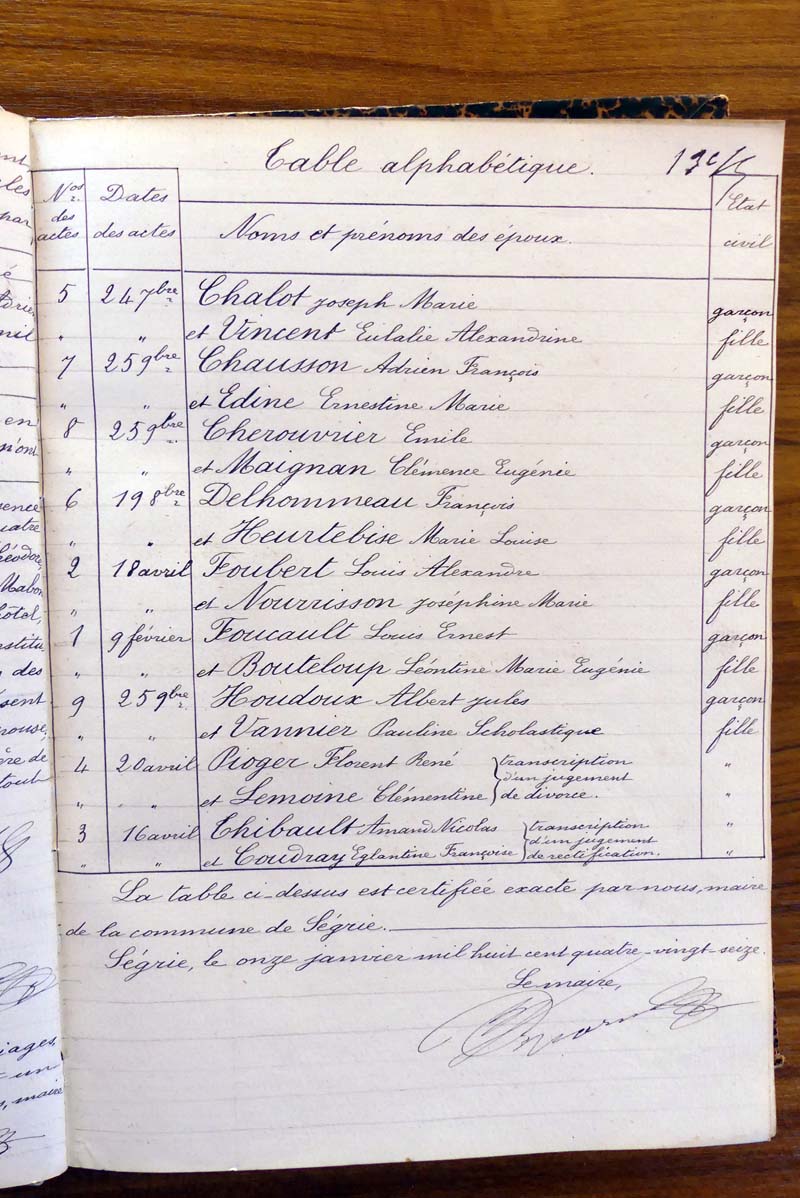 Table alphabétique.
Nos des actes Dates des actes Noms et prénoms des époux. Etat civil
5 24 7bre Chalot Joseph Marie garçon
" " et Vincent Eulalie Alexandrine fille
7 25 9bre Chausson Adrien François garçon
" " et Edine Ernestine Marie fille
8 25 9bre Cherouvrier Emile garçon
" " et Maignan Clémence Eugénie fille
6 19 8bre Delhommeau François garçon
" " et Heurtebise Marie Louise fille
2 18 avril Foubert Louis Alexandre garçon
" " et Nourrisson Joséphine Marie fille
1 9 février Foucault Louis Ernest garçon
" " et Bouteloup Léontine Marie Eugénie fille
9 25 9bre Houdoux Albert Jules garçon
" " et Vannier Pauline Scholastique fille
4 20 avril Pioger Florent René transcription "
d'un jugement
" " et Lemoine Clémentine de divorce. "
3 16 avril Thibault Amand Nicolas transcription "
d'un jugement
" " et Coudray Eglantine Françoise de rectification. "
La table ci-dessus est certifiée exacte par nous, maire
de la commune de Ségrie.
Ségrie, le onze janvier mil huit cent quatre-vingt-seize.
Le maire,